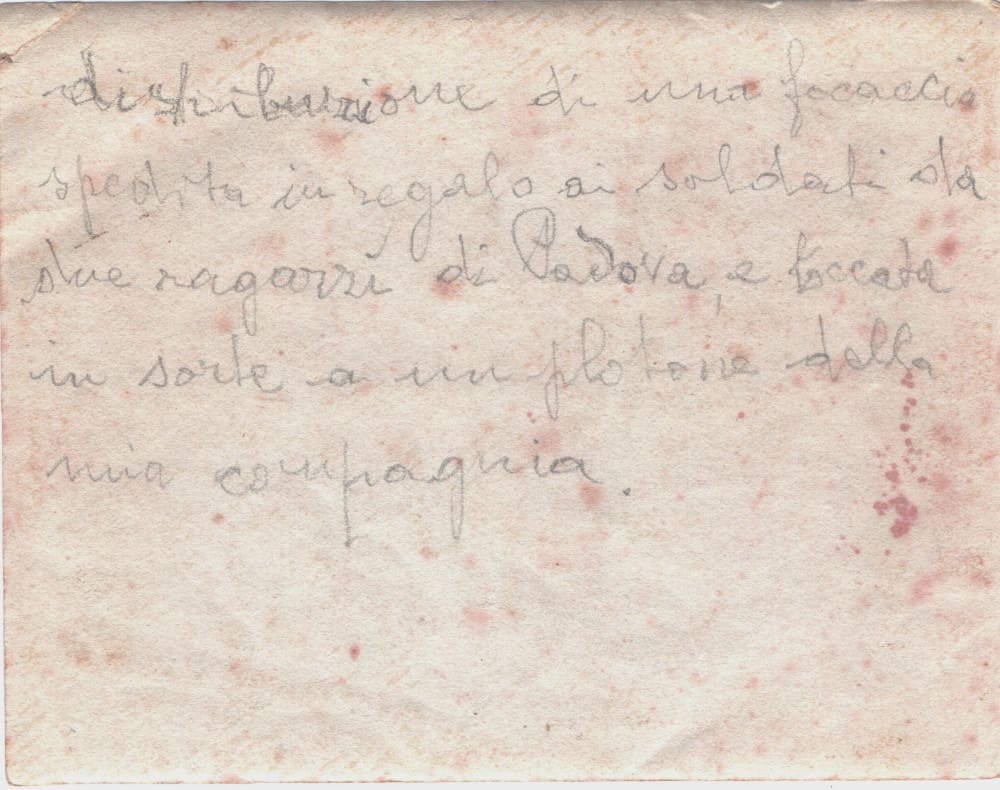 distribuzione di una focaccia
spedita in regalo ai soldati da
due ragazzi di Padova, e toccata
in sorte a un plotone della
mia compagnia.